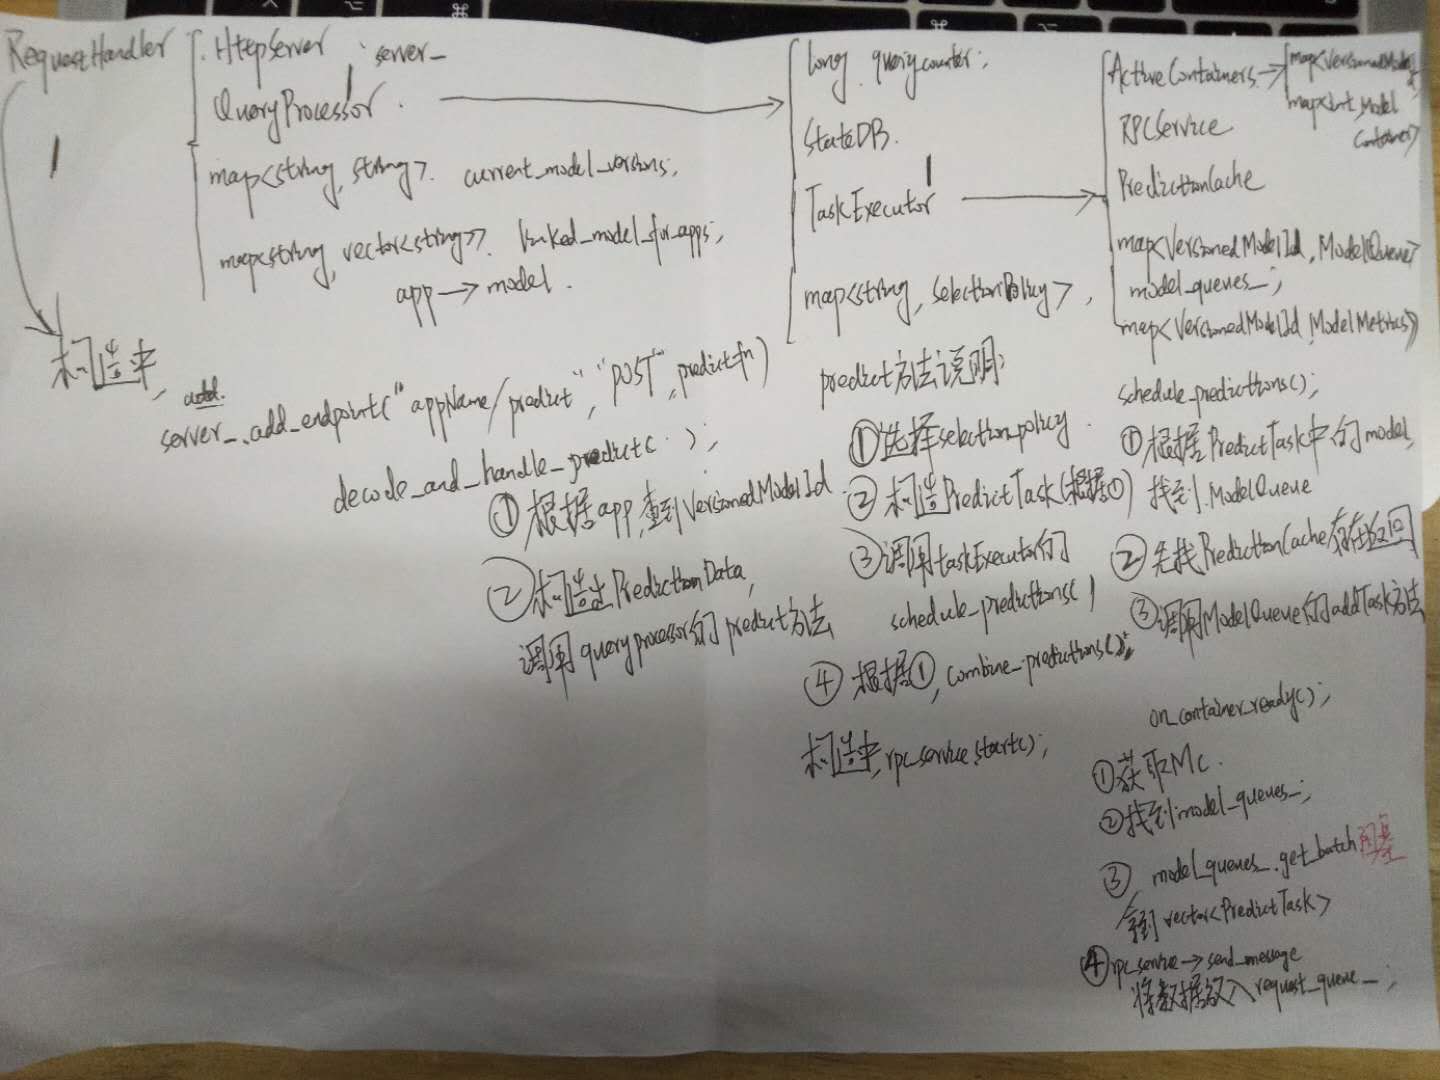 RequestHandler
HttpServer server_
QueryProcessor.
map<string, string>. current_model_versions;
map<string, vector<string>>. linked_model_for_apps;
app → model.
构造中,
add.
server_.add_endpoint("appName/predict", "POST", predictfn)
decode_and_handle_predict( );
① 根据app,查到VersionedModelId
② 构造出PredictionData,
调用queryprocessor的predict方法
long querycounter;
StateDB.
TaskExecutor
map<string, SelectionPolicy>,
predict方法说明:
①选择selection_policy.
② 构造PredictTask(根据①)
③调用taskExecutor的
schedule_predictions( )
④ 根据①, combine_predictions();
构造中,rpc_service.start();
ActiveContainers →
map<VersionedModelId,
map<int, Model
Container>
RPCService
PredictionCache
map<VersionedModelId, ModelQueue>
model_queues_;
map<VersionedModelId, ModelMetrics>
schedule_predictions();
①根据PredictTask中的model,
找到.ModelQueue
② 先找PredictionCache存在返回
③调用ModelQueue的addTask方法
on_container_ready();
①获取Mc.
②找到model_queues_;
③ model_queues_.get_batch 阻塞
拿到vector<PredictTask>
④rpc_service → send_message
将数据放入request_queue_;